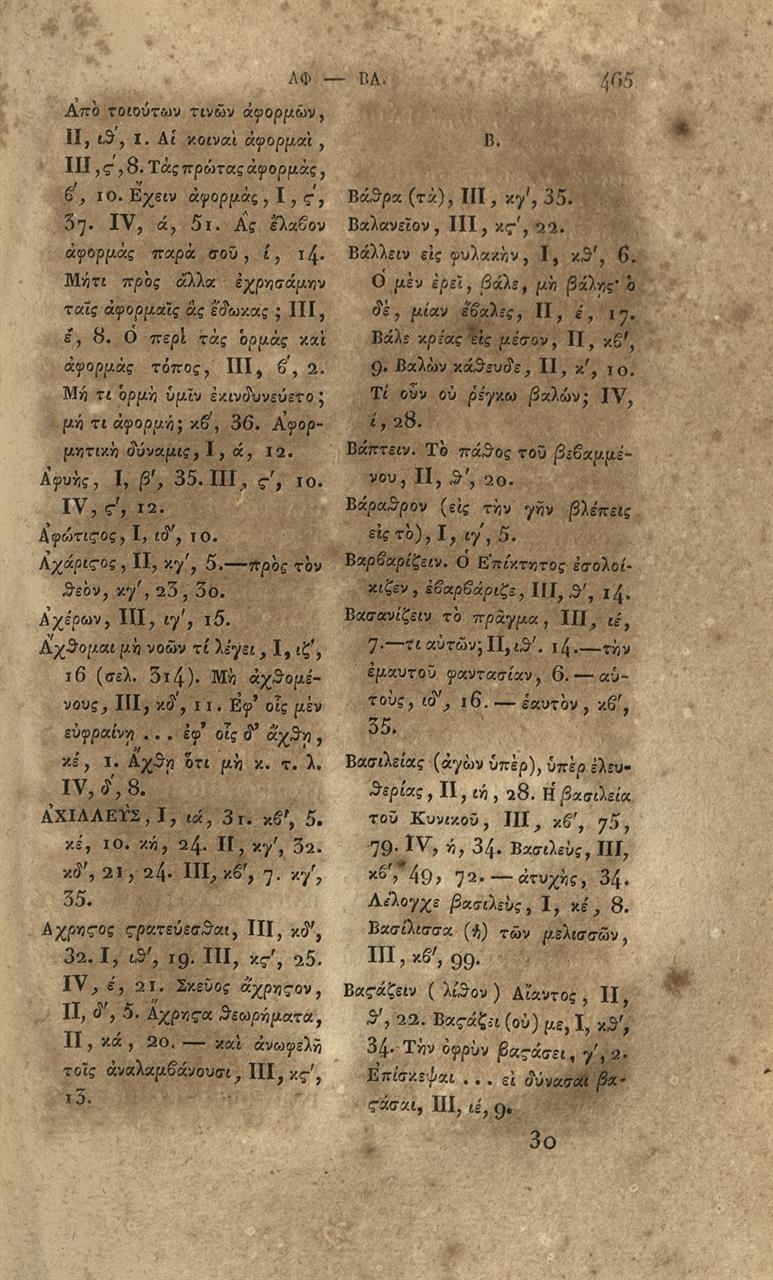 ΑΦ — ΒΑ. 465
Ἀπὸ τοιούτων τινῶν ἀφορμῶν,
II, ιθ', 1. Αἱ κοιναὶ ἀφορμαὶ,
III, ς', 8. Τὰς πρώτας ἀφορμὰς,
β', 10. Ἔχειν ἀφορμὰς, I, ς',
37. IV, ά, 51. Ἃς ἔλαβον
ἀφορμὰς παρὰ σοῦ, ί, 14.
Μήτι πρὸς ἄλλα ἐχρησάμην
ταῖς ἀφορμαῖς ἃς ἔδωκας; III,
έ, 8. Ὁ περὶ τὰς ὁρμὰς καὶ
ἀφορμὰς τόπος, III, β', 2.
Μή τι ὁρμὴ ὑμῖν ἐκινδυνεύετο;
μή τι ἀφορμή; κβ', 36. Ἀφορ-
μητικὴ δύναμις, I, ά, 12.
Ἀφυὴς, I, β', 35. III, ς', 10.
IV, ς', 12.
Ἀφώτιϛος, I, ιδ', 10.
Ἀχάριϛος, II, κγ', 5.—πρὸς τὸν
θεὸν, κγ', 23, 30.
Ἀχέρων, III, ιγ', 15.
Ἄχθομαι μὴ νοῶν τί λέγει, I, ιζ',
16 (σελ. 314). Μὴ ἀχθομέ-
νους, III, κδ', 11. Ἐφ' οἷς μὲν
εὐφραίνῃ ... ἐφ' οἷς δ' ἄχθῃ,
κέ, 1. Ἄχθῃ ὅτι μὴ κ. τ. λ.
IV, δ', 8.
ἈΧΙΛΛΕῪΣ, I, ιά, 31. κβ', 5.
κέ, 10. κή, 24. II, κγ', 32.
κδ', 21, 24. III, κβ', 7. κγ',
35.
Ἄχρηϛος ϛρατεύεσθαι, III, κδ',
32. I, ιθ', 19. III, κς', 25.
IV, έ, 21. Σκεῦος ἄχρηϛον,
II, δ', 5. Ἄχρηϛα θεωρήματα,
II, κά, 20. — καὶ ἀνωφελῆ
τοῖς ἀναλαμβάνουσι, III, κς',
13.
Β.
Βάθρα (τὰ), III, κγ', 35.
Βαλανεῖον, III, κς', 22.
Βάλλειν εἰς φυλακὴν, I, κθ', 6.
Ὁ μὲν ἐρεῖ, βάλε, μὴ βάλῃς· ὁ
δὲ, μίαν ἔβαλες, II, έ, 17.
Βάλε κρέας εἰς μέσον, II, κβ',
9. Βαλὼν κάθευδε, II, κ', 10.
Τί οὖν οὐ ῥέγκω βαλών; IV,
ί, 28.
Βάπτειν. Τὸ πάθος τοῦ βεβαμμέ-
νου, II, θ', 20.
Βάραθρον (εἰς τὴν γῆν βλέπεις
εἰς τὸ), I, ιγ', 5.
Βαρβαρίζειν. Ὁ Ἐπίκτητος ἐσολοί-
κιζεν, ἐβαρβάριζε, III, θ', 14.
Βασανίζειν τὸ πρᾶγμα, III, ιέ,
7.—τι αὐτῶν; II, ιθ'. 14.—τὴν
ἐμαυτοῦ φαντασίαν, 6. — αὐ-
τοὺς, ιδ', 16. — ἑαυτὸν, κβ',
35.
Βασιλείας (ἀγὼν ὑπὲρ), ὑπὲρ ἐλευ-
θερίας, II, ιή, 28. Ἡ βασιλεία
τοῦ Κυνικοῦ, III, κβ', 75,
79. IV, ή, 34. Βασιλεὺς, III,
κβ', 49, 72. — ἀτυχὴς, 34.
Λέλογχε βασιλεὺς, I, κέ, 8.
Βασίλισσα (ἡ) τῶν μελισσῶν,
III, κβ', 99.
Βαϛάζειν (λίθον) Αἴαντος, II,
θ', 22. Βαϛάζει (οὐ) με, I, κθ',
34. Τὴν ὀφρὺν βαϛάσει, γ', 2.
Ἐπίσκεψαι ... εἰ δύνασαι βα-
ϛάσαι, III, ιέ, 9.
30